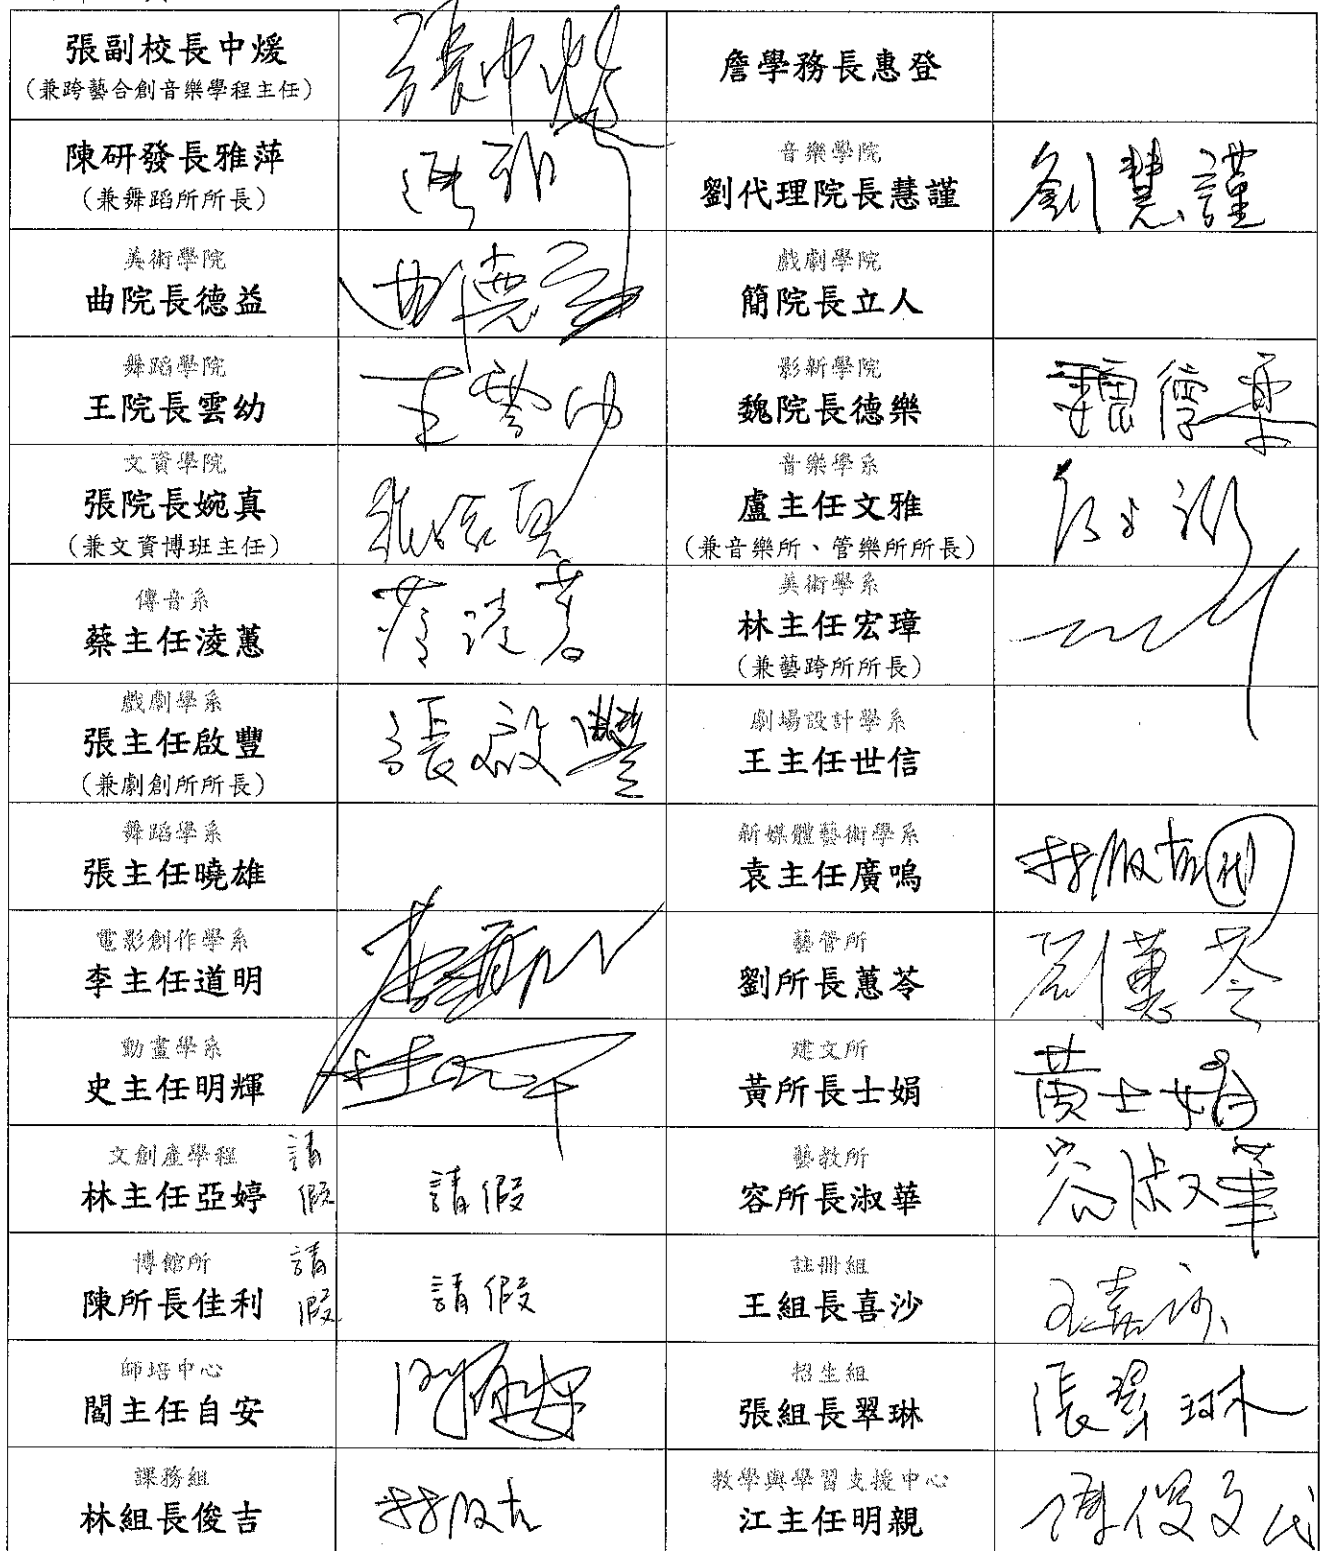 張副校長中煖
(兼跨藝合創音樂學程主任)
張中煖
詹學務長惠登
陳研發長雅萍
(兼舞蹈所所長)
音樂學院
劉代理院長慧謹
劉慧謹
美術學院
曲院長德益
曲德益
戲劇學院
簡院長立人
舞蹈學院
王院長雲幼
王雲幼
影新學院
魏院長德樂
魏德樂
文資學院
張院長婉真
(兼文資博班主任)
張婉真
音樂學系
盧主任文雅
(兼音樂所、管樂所所長)
傳音系
蔡主任淩蕙
美術學系
林主任宏璋
(兼藝跨所所長)
戲劇學系
張主任啟豐
(兼劇創所所長)
張啟豐
劇場設計學系
王主任世信
舞蹈學系
張主任曉雄
新媒體藝術學系
袁主任廣鳴
林俊吉代
電影創作學系
李主任道明
藝管所
劉所長蕙苓
劉蕙苓
動畫學系
史主任明輝
建文所
黃所長士娟
黃士娟
文創產學程
林主任亞婷
請假
請假
藝教所
容所長淑華
容淑華
博館所
陳所長佳利
請假
請假
註冊組
王組長喜沙
王喜沙
師培中心
閻主任自安
招生組
張組長翠琳
張翠琳
課務組
林組長俊吉
林俊吉
教學與學習支援中心
江主任明親
陳俊文代